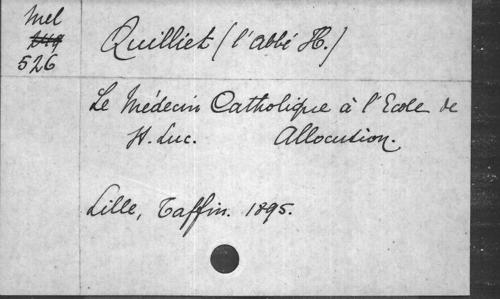 Mel
526
Quilliet (l'abbé H.)
Le Médecin Catholique à l'Ecole de
St. Luc. Allocution.
Lille, Taffin. 1895.